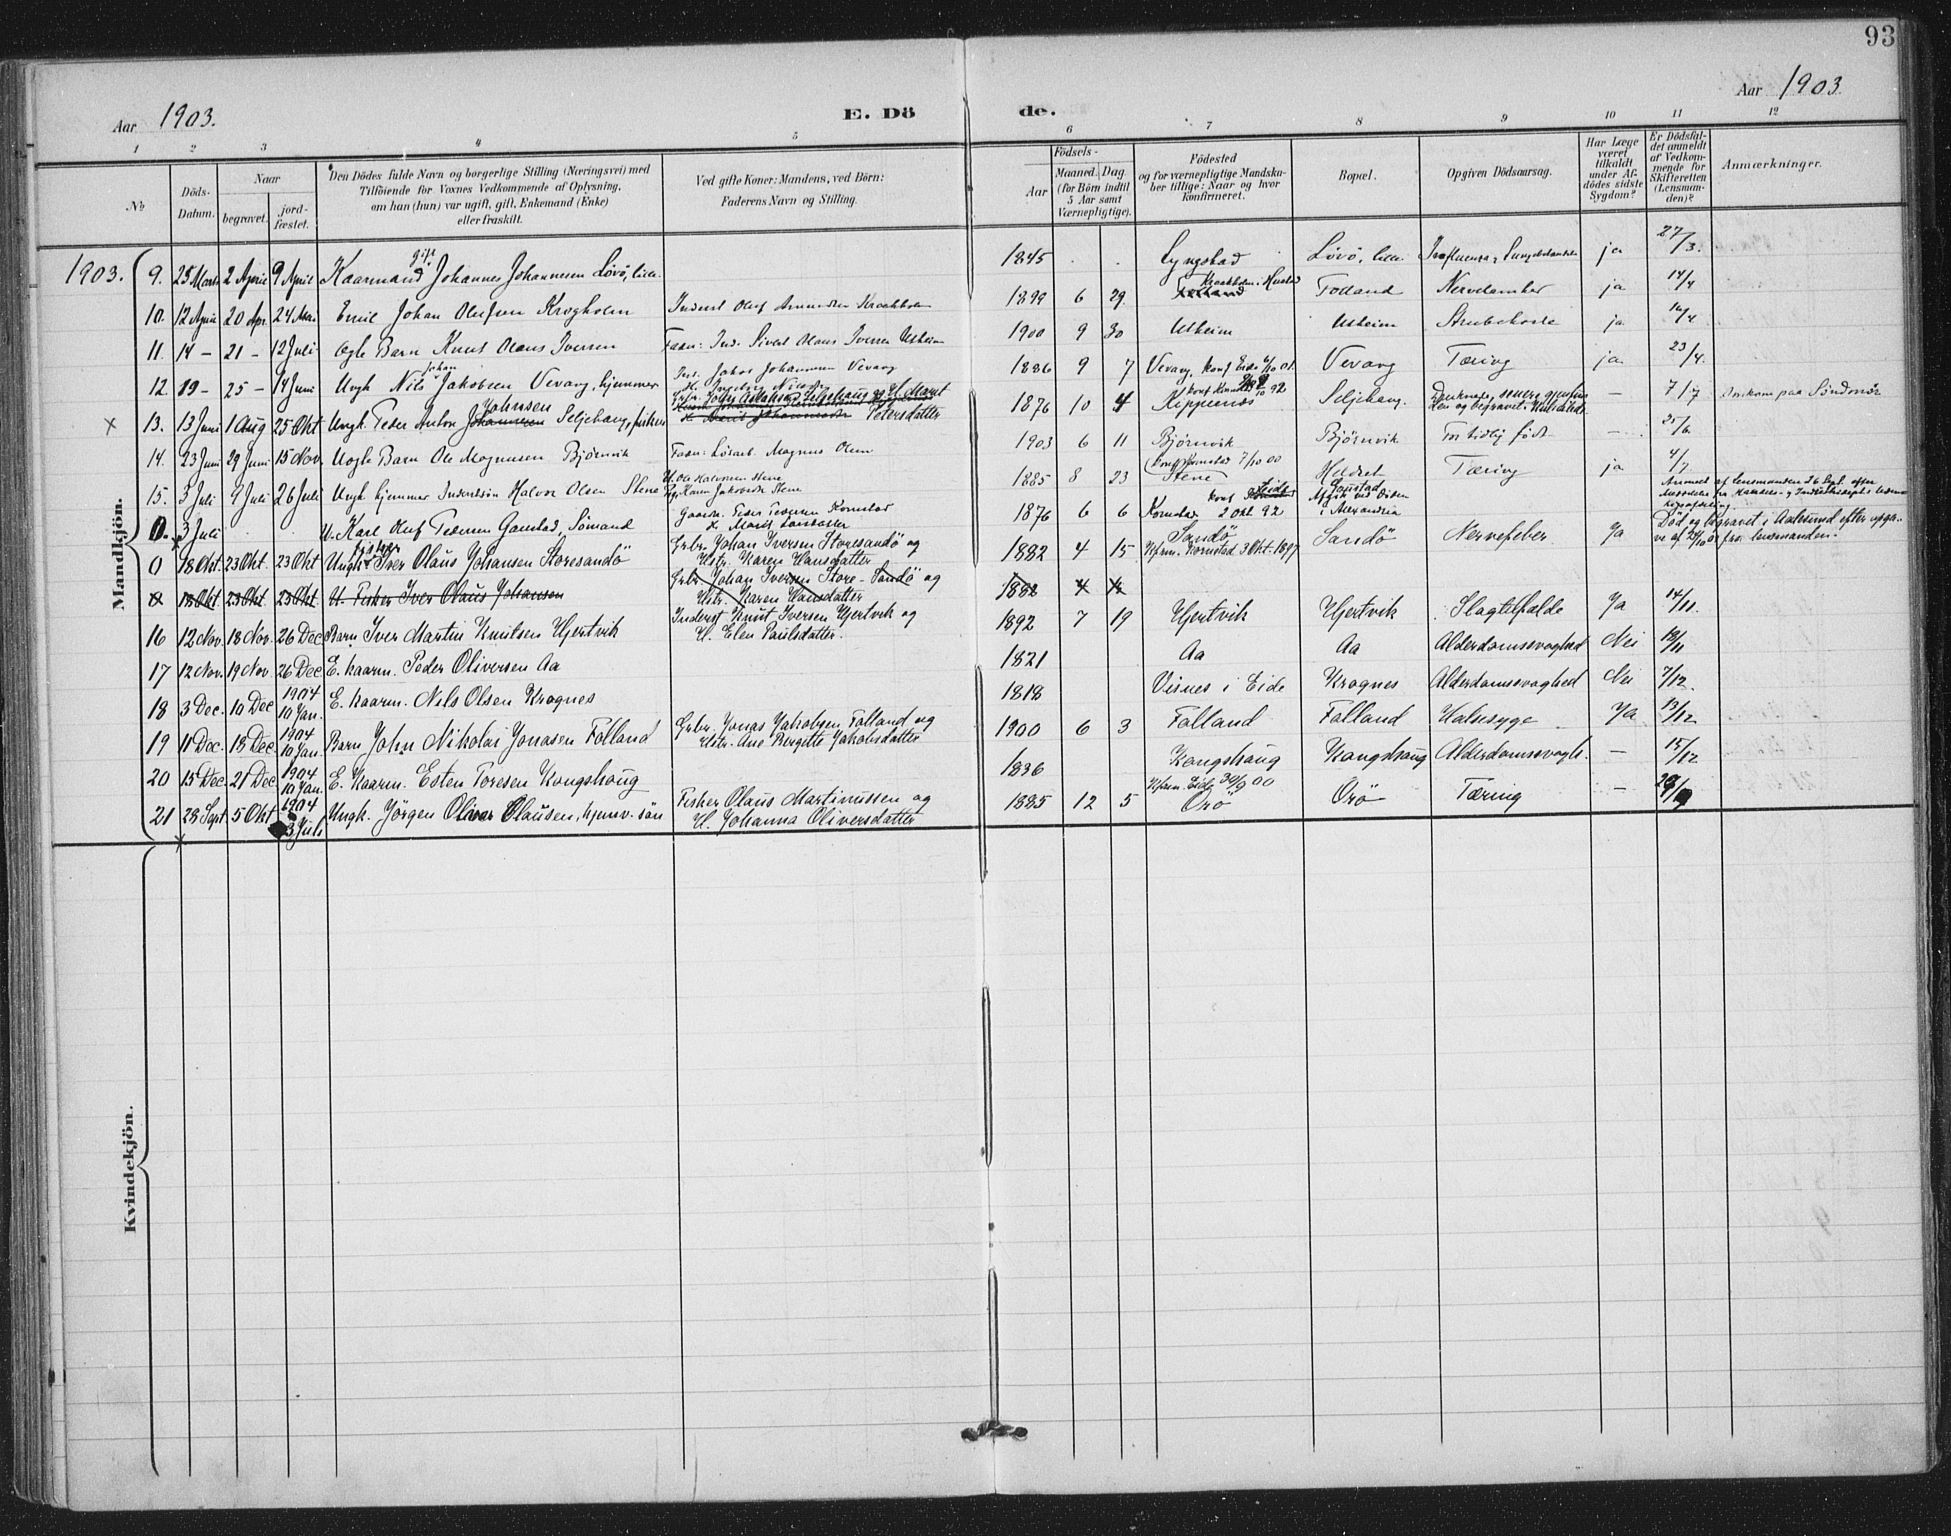 93
Aar 1903.
E. Dö de.
Aar 1903.
1 2 3 4 5 6 7 8 9 10 11 12
No
Döds-Datum.
Naar
begravet.
jordfæstet.
Den Dödes fulde Navn og borgerlige Stilling (Næringsvei) med
Tilföiende for Voxnes Vedkommende af Oplysning,
om han (hun) var ugift, gift, Enkemand (Enke)
eller fraskilt.
Ved gifte Koner: Mandens, ved Börn:
Faderens Navn og Stilling.
Födsels-
Aar
Maaned. Dag
(for Börn indtil
5 Aar samt
Værnepligtige).
Födested
og for værnepligtige Mandska-
ber tillige: Naar og hvor
konfirmeret.
Bopæl.
Opgiven Dödsaarsag.
Har Læge
været
tilkaldt
under Af-
dödes sidste
Sygdom?
Er Dödsfal-
det anmeldt
af Vedkom-
mende for
Skifteretten
(Lensman-
den)?
Anmærkninger.
Mandkjön.
1903. 9. 25 Marts 2 April 9 April Kaarmand gift Johannes Johannesen Lövö, lille 1845 . . Lyngstad Lövö, lille Influenza, Lungebetændelse ja 27/3.
10. 12 April 20 Apr. 24 Mai Emil Johan Olufsen Krogholm Inderst Oluf Amundsen Kraakholm 1899 6 29. Kraakholm, Hustad Folland ja 14/4
11. 14 – 21 – 12 Juli Ogle Barn Knut Olaus Iversen Fader: Ind. Sivert Olaus Iversen Usheim 1900 9 30 Usheim Usheim Strubehoste ja 14/4
12. 19 – 25 – 14 Juni Ungk Nils Johan Jakobsen Vevang, hjemmev. Ind. Jakob Johannesen Vevang H. Ingeborg Nilsdtr 1886 9 7 Vevang, konf Eide 6/10 01. Vevang Tæring ja 23/4.
x 13. 13 Juni 1 Aug 25 Okt Ungk. Peder Anton Johannesen Johnsen Seljehaug, fisker Petersdatter 1876 10 4 Kippernes Seljehaug. – 7/7 Omkom paa Söndmör
14. 23 Juni 29 Juni 15 Nov. Uægte Barn Ole Magnusen Bjørnvik Fader: Løsarb. Magnus Olsen 1903 6 11 Bjørnvik Bjørnvik For tidlig født – 25/6
15. 3 Juli 9 Juli 26 Juli Ungk hjemmev Inderstsön Halvor Olsen Stene Ole Halvorsen Stene Karen Jakobsdtr Stene 1885 8 23 (konf Kornstad 7/10 00 Stene Holdset Tæring ja 4/7
0. 3 Juli U. Karl Oluf Pedersen Gaustad, Sømand Gaardm. Peder Pedersen Kornstad H. Marit Larsdatter 1876 6 6 Kornstad konf Eide 2 Okt. 92 Gaustad i Alexandria
0 18 Okt. 23 Okt. 23 Okt Ungk. fisker Iver Olaus Johansen Storesandö Grbr. Johan Iversen Storesandö og Hstr. Karen Hansdatter 1882 4 15 Sandö Kfrm. Kornstad 3 Okt. 1897 Sandö Nervefeber Ja Död og begravet i Aalesund efter opga-
ve af 24/10 03 fra lensmanden.
0 18 Okt 23 Okt. 23 Okt. U. Fisker Iver Olaus Johansen Grbr. Johan Iversen Store-Sandö og Hstr. Karen Hansdatter 1882 4
16 12 Nov. 18 Nov. 26 Dec Barn Iver Martin Knutsen Hjertvik Inderst Knut Iversen Hjertvik og H. Elen Paulsdatter. 1892 7 19 Hjertvik Hjertvik Slagtilfælde Ja 14/11.
17 12 Nov. 19 Nov. 26 Dec E. kaarm. Peder Oliversen Aa 1821 Aa Aa Alderdomssvaghed Nei 18/11
18 3 Dec. 10 Dec 1904 10 Jan. E. kaarm. Nils Olsen Krognes 1818 Visnes i Eide Krognes Alderdomssvaghed Nei 7/12.
19 11 Dec 18 Dec 1904 10 Jan. Barn John Nikolai Jonasen Folland Grbr. Jonas Jakobsen Folland og Hstr. Ane Bergitte Jakobsdatter 1900 6 3 Folland Folland Halssyge Ja 13/12
20 15 Dec. 21 Dec 1904 10 Jan. E. kaarm. Esten Toresen Kongshaug 1836 Kongshaug Kongshaug Alderdomssvagh. – 15/12
21 28 Sept 5 Okt 1904 3 Juli Ungk. Jörgen Oliver Olausen, hjemv. sön Fisker Olaus Martinussen og H. Johanna Oliversdatter 1885 12 5 Kfrm. Eide 30/9 00 Orö Orö Tæring – 28/9
Kvindekjön.